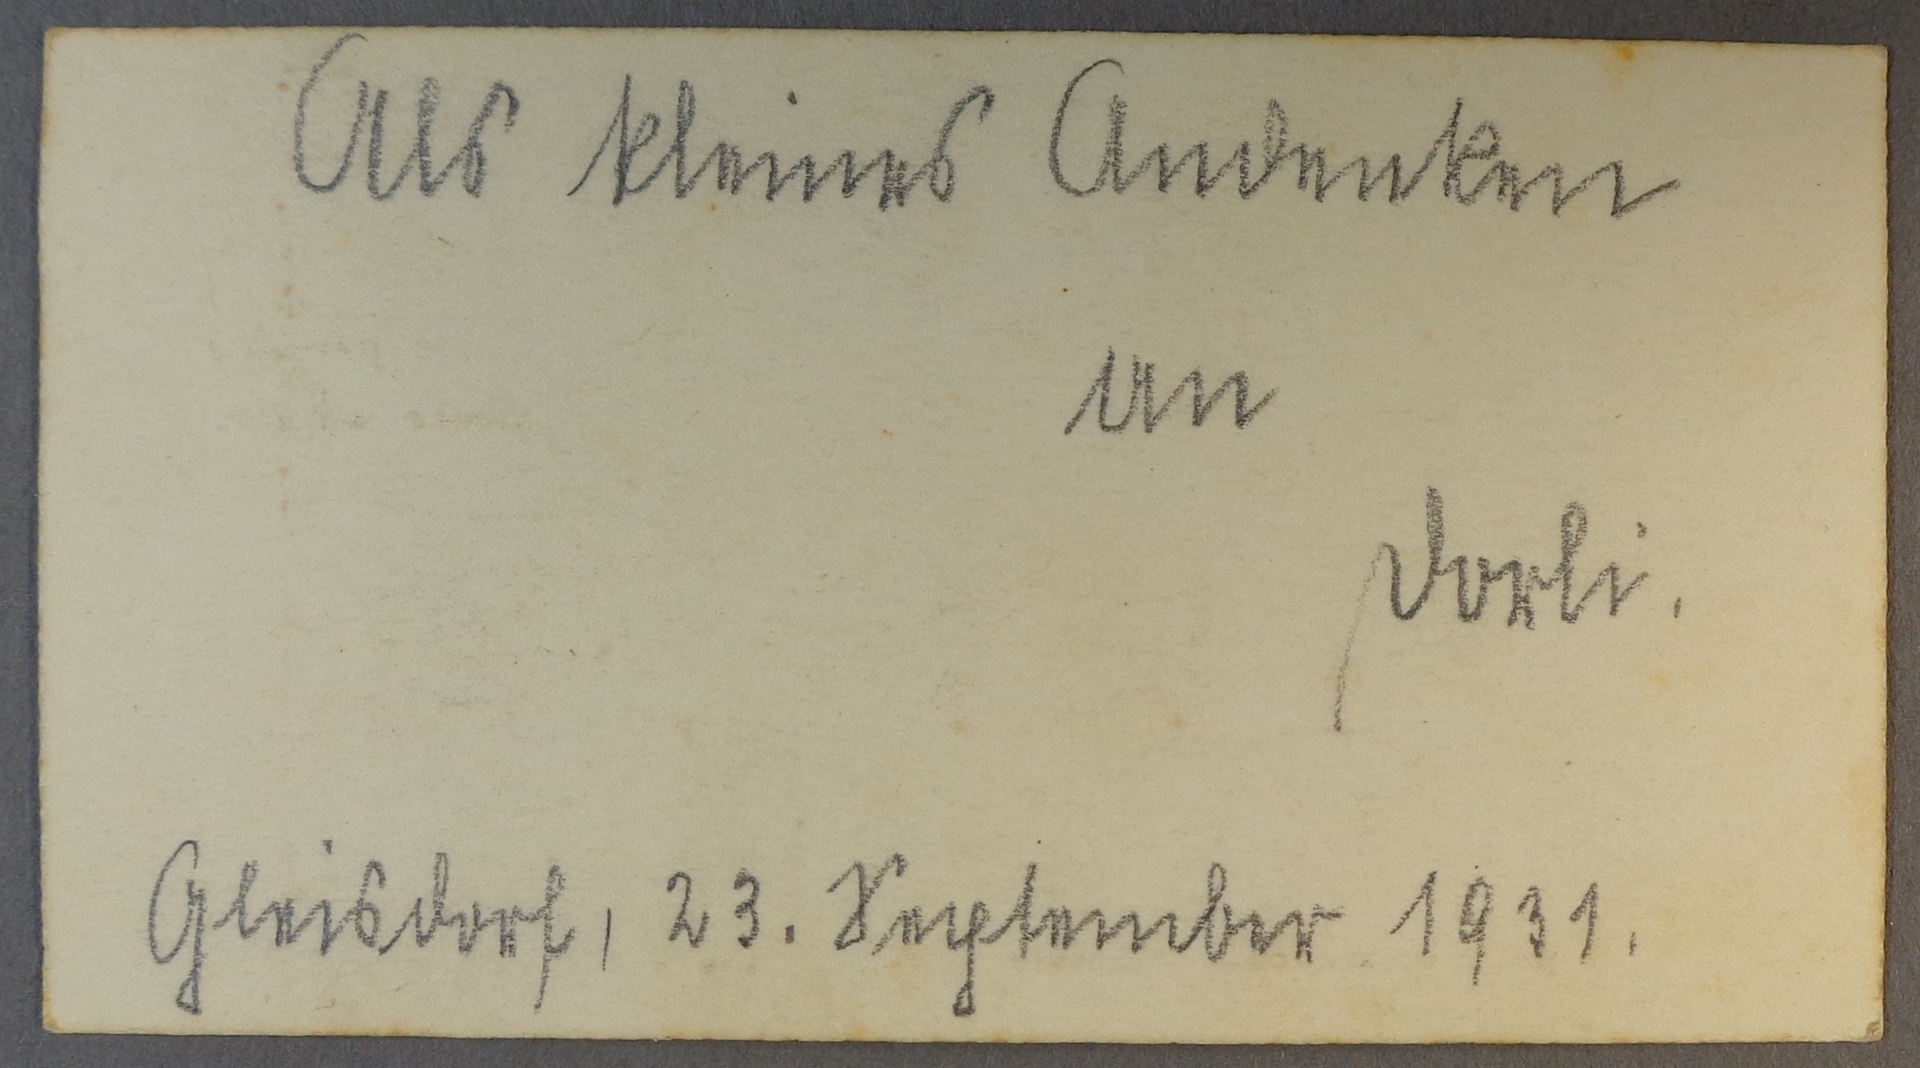 Als kleines Andenken
an
Dorli.
Gleisdorf, 23. September 1931.